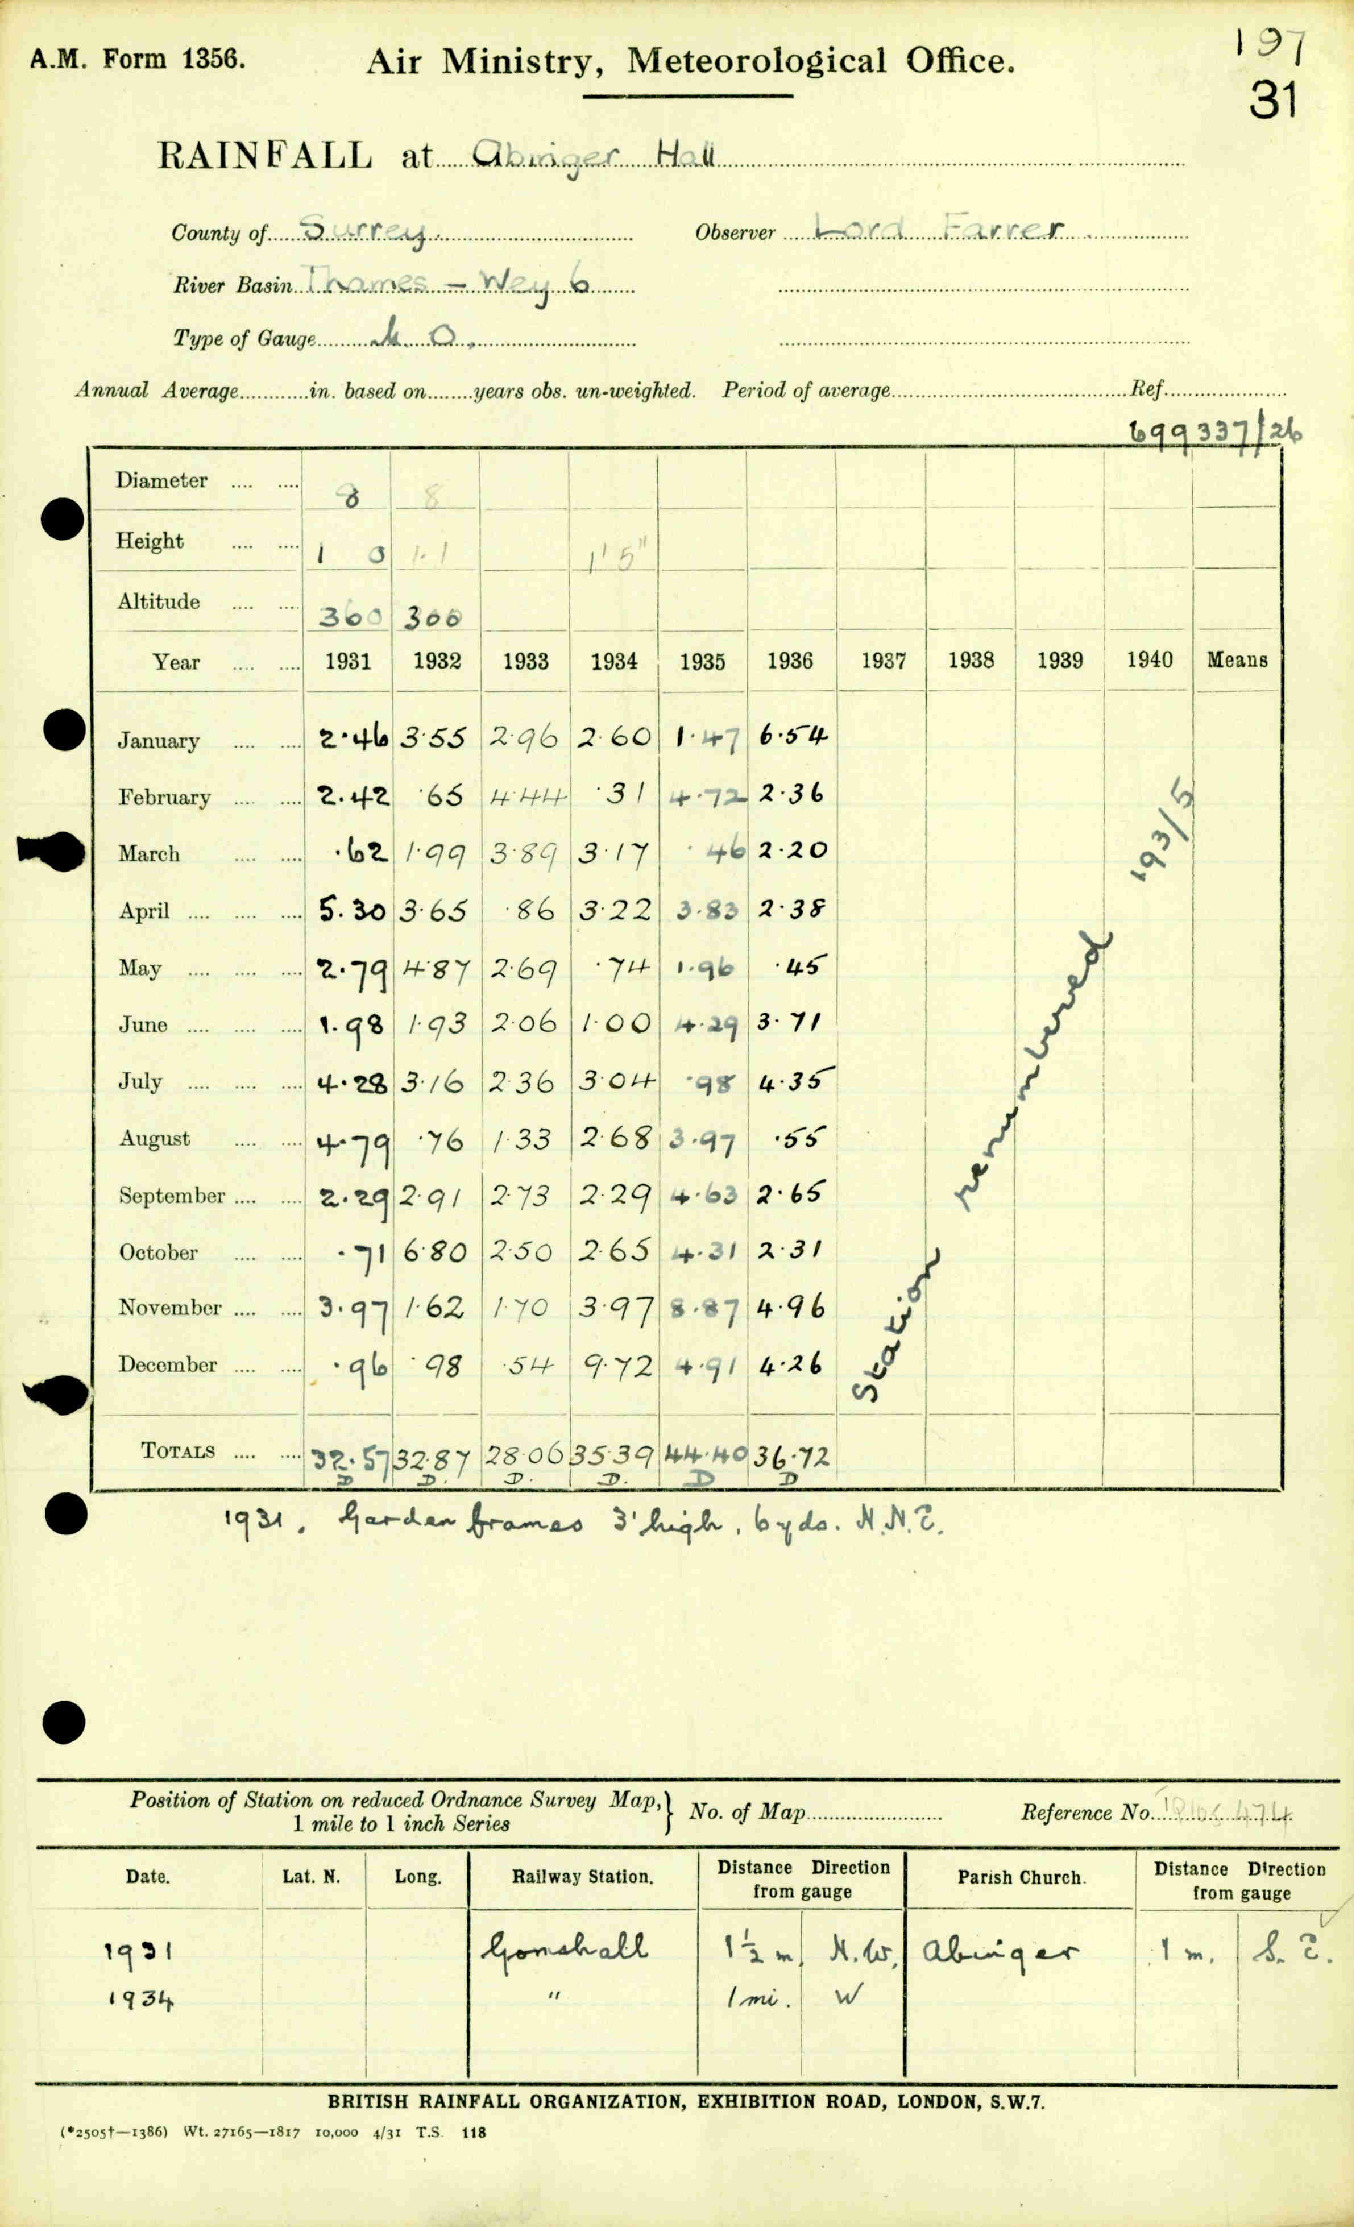 A.M. Form 1356.
Air Ministry, Meteorological Office.
197
31
RAINFALL at Abinger Hall
County of Surrey. Observer Lord Farrer
River Basin Thames - Wey 6
Type of Gauge M. O.
Annual Average in. based on years obs. un-weighted. Period of average Ref.
699337/26
Diameter 8 8
Height 1 0 1.1 1' 5"
Altitude 360 300
Year 1931 1932 1933 1934 1935 1936 1937 1938 1939 1940 Means
January 2.46 3.55 2.96 2.60 1.47 6.54
February 2.42 .65 4.44 .31 4.72 2.36
March .62 1.99 3.89 3.17 .46 2.20
April 5.30 3.65 .86 3.22 3.83 2.38
May 2.79 4.87 2.69 .74 1.96 .45
June 1.98 1.93 2.06 1.00 4.29 3.71
July 4.28 3.16 2.36 3.04 .98 4.35
August 4.79 .76 1.33 2.68 3.97 .55
September 2.29 2.91 2.73 2.29 4.63 2.65
October .71 6.80 2.50 2.65 4.31 2.31
November 3.97 1.62 1.70 3.97 8.87 4.96
December .96 .98 .54 9.72 4.91 4.26
TOTALS 32.57 32.87 28.06 35.39 44.40 36.72
D D. D. D. D D
Station renumbered 193/5
1931. Garden frames 3' high, 6 yds. N.N.E.
Position of Station on reduced Ordnance Survey Map, 1 mile to 1 inch Series } No. of Map Reference No. 474
Date. Lat. N. Long. Railway Station. Distance Direction from gauge Parish Church. Distance Direction from gauge
1931 Gomshall 1½ m. N.W. Abinger 1 m. S. E.
1934 " 1 mi. W
BRITISH RAINFALL ORGANIZATION, EXHIBITION ROAD, LONDON, S.W.7.
(*2505†—1386) Wt. 27165—1817 10,000 4/31 T.S. 118